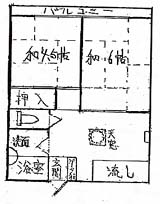 バルコニー
和4.5帖
和6帖
押入
天窓
洗面
浴室
玄関
下駄箱
流し